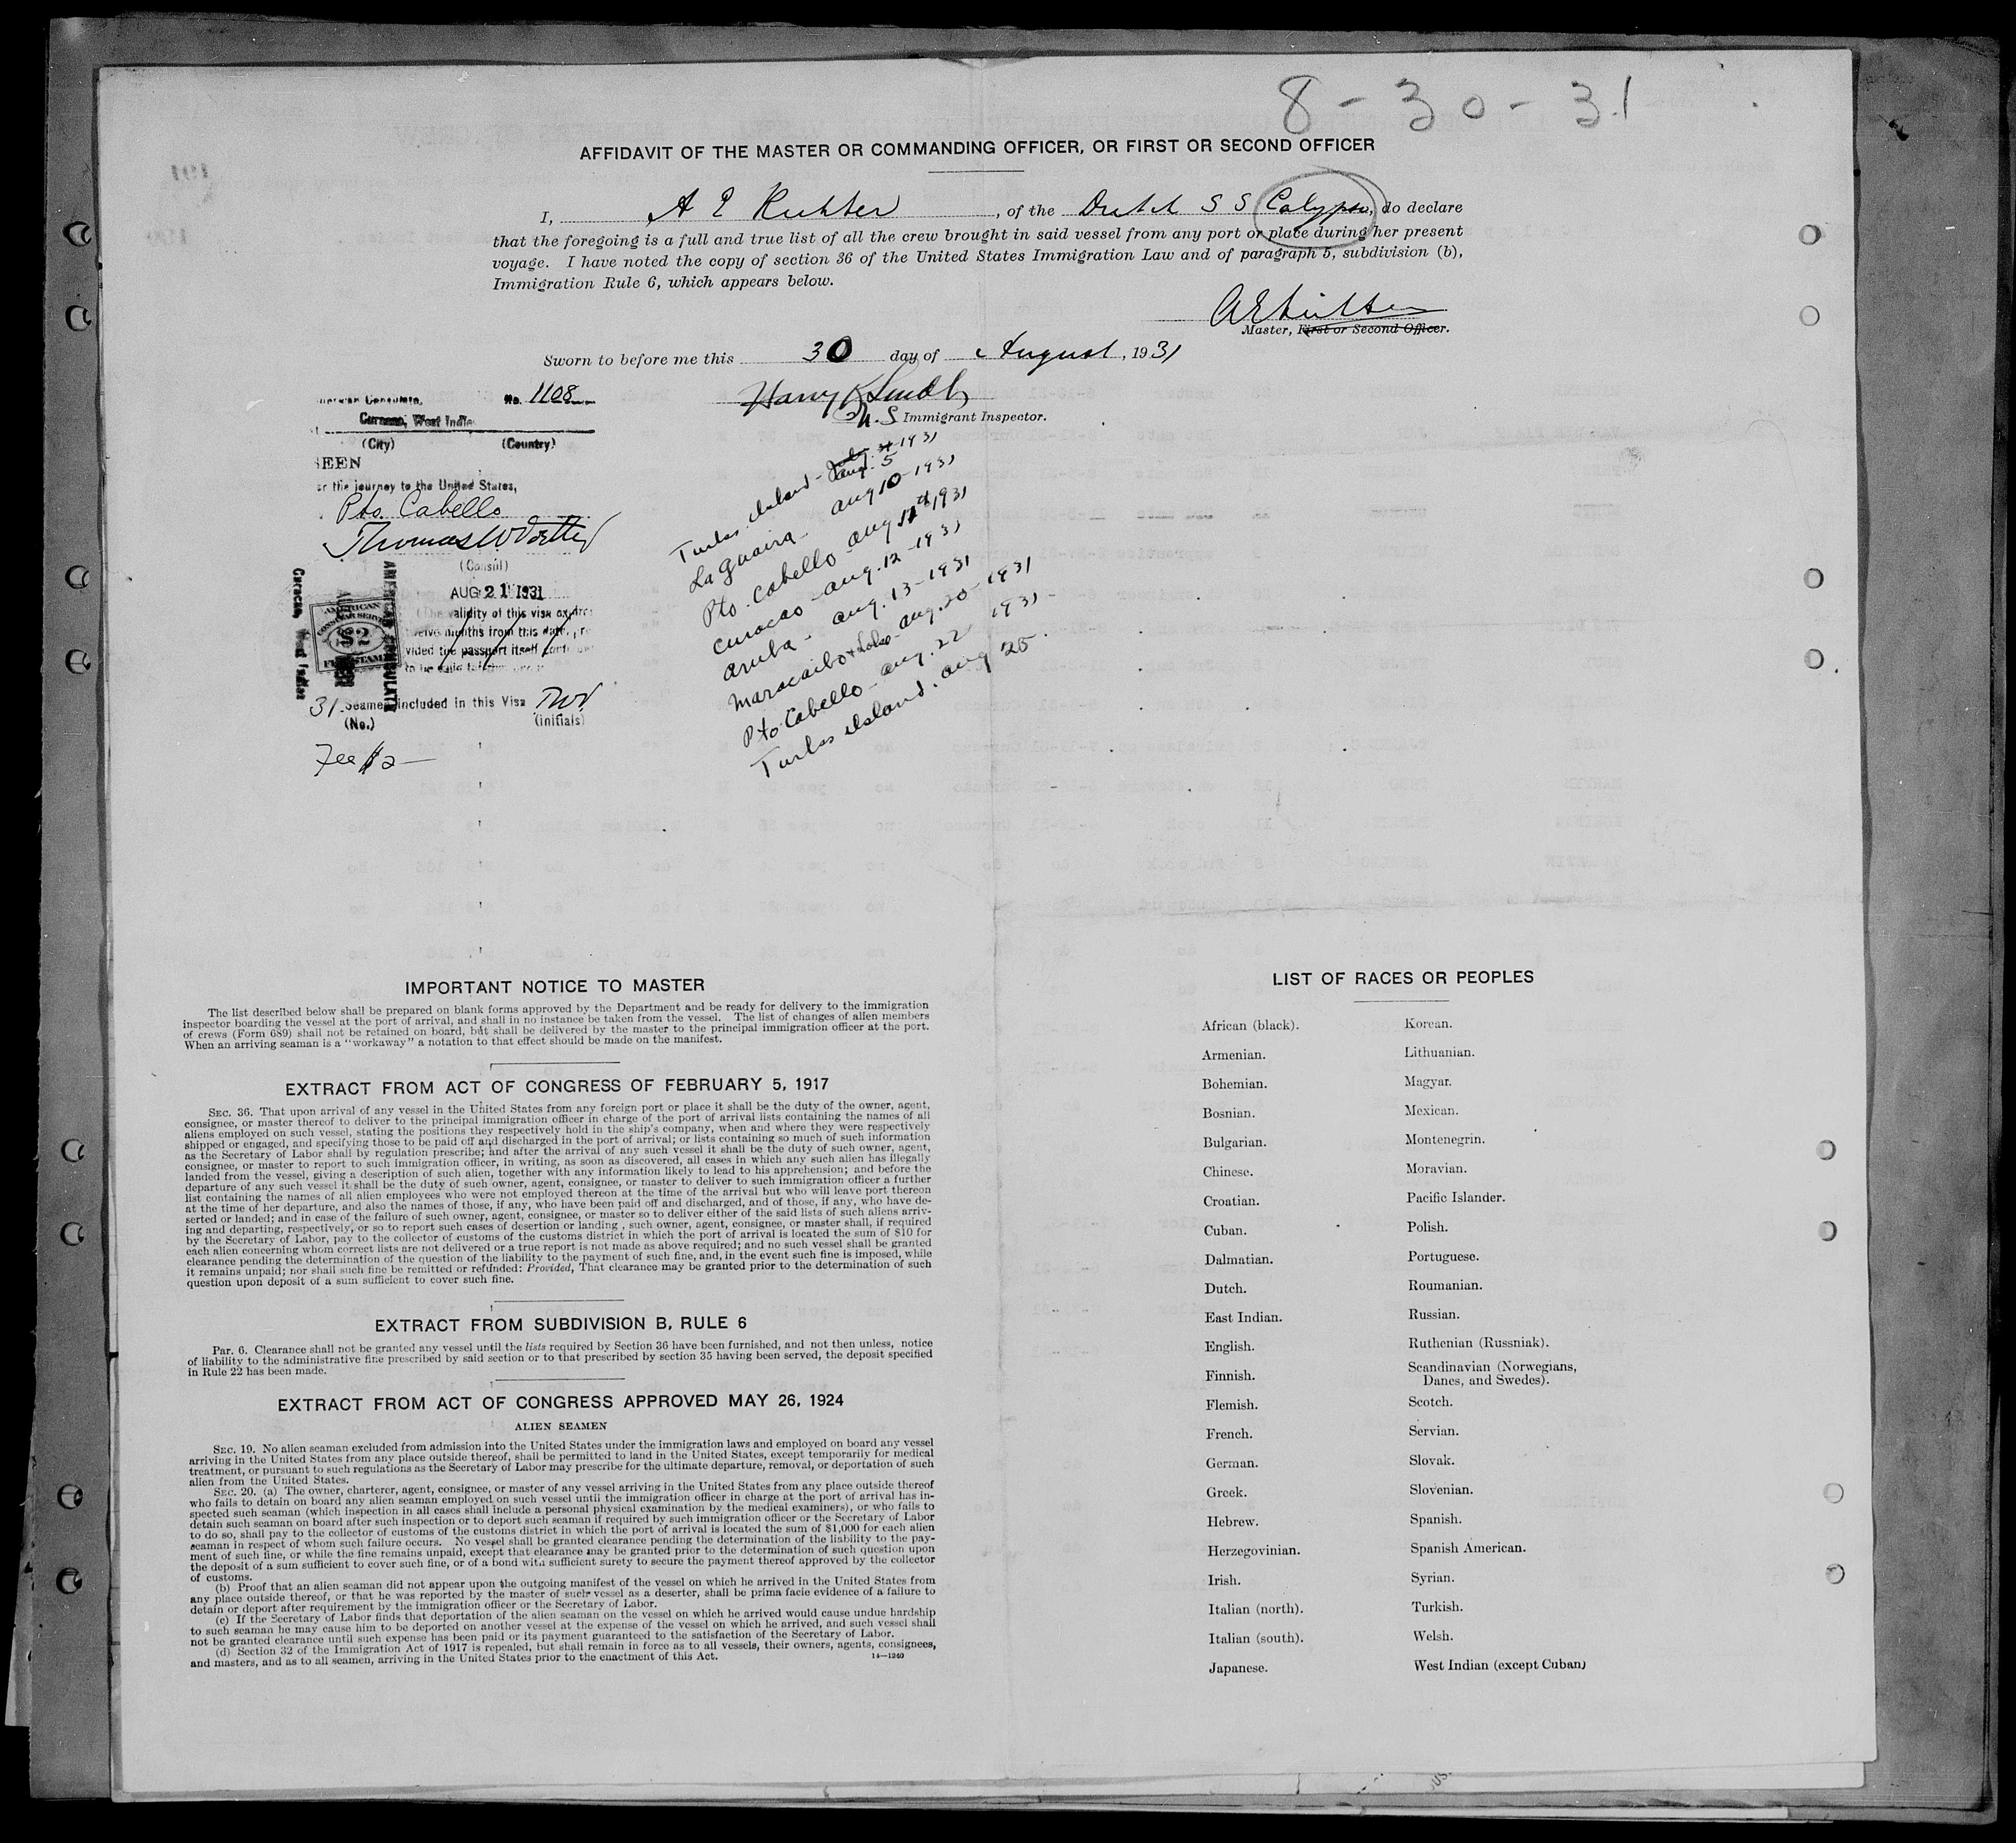 8-30-31
AFFIDAVIT OF THE MASTER OR COMMANDING OFFICER, OR FIRST OR SECOND OFFICER
I, A E , of the Dutch S S Calypso, do declare
that the foregoing is a full and true list of all the crew brought in said vessel from any port or place during her present
voyage. I have noted the copy of section 36 of the United States Immigration Law and of paragraph 5, subdivision (b),
Immigration Rule 6, which appears below.
Master, First or Second Officer.
Sworn to before me this 30 day of August, 1931
Harry K
U. S Immigrant Inspector.
American Consulate, No. 1108
Curacao, West Indies
(City) (Country)
SEEN
for the journey to the United States,
Pto. Cabello
Thomas W
(Consul)
AUG 21 1931
(The validity of this visa expires
twelve months from this date, pro-
vided the passport itself continues
to be valid for that period
AMERICAN
CONSULAR SERVICE
$2
FEE STAMP
AMERICAN CONSULATE
Curacao, West Indies
31 Seamen included in this Visa
(No.) (initials)
Fee $2—
Turks Island - Aug. 5 1931
La Guaira - Aug 10 - 1931
Pto. Cabello - Aug 11 1931
Curacao - Aug. 12 - 1931
Aruba - Aug. 13 - 1931
Maracaibo - Aug. 20 - 1931
Pto Cabello - Aug. 22 1931 -
Turks Island. Aug 25.
IMPORTANT NOTICE TO MASTER
The list described below shall be prepared on blank forms approved by the Department and be ready for delivery to the immigration
inspector boarding the vessel at the port of arrival, and shall in no instance be taken from the vessel. The list of changes of alien members
of crews (Form 689) shall not be retained on board, but shall be delivered by the master to the principal immigration officer at the port.
When an arriving seaman is a "workaway" a notation to that effect should be made on the manifest.
EXTRACT FROM ACT OF CONGRESS OF FEBRUARY 5, 1917
SEC. 36. That upon arrival of any vessel in the United States from any foreign port or place it shall be the duty of the owner, agent,
consignee, or master thereof to deliver to the principal immigration officer in charge of the port of arrival lists containing the names of all
aliens employed on such vessel, stating the positions they respectively hold in the ship's company, when and where they were respectively
shipped or engaged, and specifying those to be paid off and discharged in the port of arrival; or lists containing so much of such information
as the Secretary of Labor shall by regulation prescribe; and after the arrival of any such vessel it shall be the duty of such owner, agent,
consignee, or master to report to such immigration officer, in writing, as soon as discovered, all cases in which any such alien has illegally
landed from the vessel, giving a description of such alien, together with any information likely to lead to his apprehension; and before the
departure of any such vessel it shall be the duty of such owner, agent, consignee, or master to deliver to such immigration officer a further
list containing the names of all alien employees who were not employed thereon at the time of the arrival but who will leave port thereon
at the time of her departure, and also the names of those, if any, who have been paid off and discharged, and of those, if any, who have de-
serted or landed; and in case of the failure of such owner, agent, consignee, or master so to deliver either of the said lists of such aliens arriv-
ing and departing, respectively, or so to report such cases of desertion or landing , such owner, agent, consignee, or master shall, if required
by the Secretary of Labor, pay to the collector of customs of the customs district in which the port of arrival is located the sum of $10 for
each alien concerning whom correct lists are not delivered or a true report is not made as above required; and no such vessel shall be granted
clearance pending the determination of the question of the liability to the payment of such fine, and, in the event such fine is imposed, while
it remains unpaid; nor shall such fine be remitted or refunded: Provided, That clearance may be granted prior to the determination of such
question upon deposit of a sum sufficient to cover such fine.
EXTRACT FROM SUBDIVISION B, RULE 6
Par. 6. Clearance shall not be granted any vessel until the lists required by Section 36 have been furnished, and not then unless, notice
of liability to the administrative fine prescribed by said section or to that prescribed by section 35 having been served, the deposit specified
in Rule 22 has been made.
EXTRACT FROM ACT OF CONGRESS APPROVED MAY 26, 1924
ALIEN SEAMEN
SEC. 19. No alien seaman excluded from admission into the United States under the immigration laws and employed on board any vessel
arriving in the United States from any place outside thereof, shall be permitted to land in the United States, except temporarily for medical
treatment, or pursuant to such regulations as the Secretary of Labor may prescribe for the ultimate departure, removal, or deportation of such
alien from the United States.
SEC. 20. (a) The owner, charterer, agent, consignee, or master of any vessel arriving in the United States from any place outside thereof
who fails to detain on board any alien seaman employed on such vessel until the immigration officer in charge at the port of arrival has in-
spected such seaman (which inspection in all cases shall include a personal physical examination by the medical examiners), or who fails to
detain such seaman on board after such inspection or to deport such seaman if required by such immigration officer or the Secretary of Labor
to do so, shall pay to the collector of customs of the customs district in which the port of arrival is located the sum of $1,000 for each alien
seaman in respect of whom such failure occurs. No vessel shall be granted clearance pending the determination of the liability to the pay-
ment of such fine, or while the fine remains unpaid, except that clearance may be granted prior to the determination of such question upon
the deposit of a sum sufficient to cover such fine, or of a bond with sufficient surety to secure the payment thereof approved by the collector
of customs.
(b) Proof that an alien seaman did not appear upon the outgoing manifest of the vessel on which he arrived in the United States from
any place outside thereof, or that he was reported by the master of such vessel as a deserter, shall be prima facie evidence of a failure to
detain or deport after requirement by the immigration officer or the Secretary of Labor.
(c) If the Secretary of Labor finds that deportation of the alien seaman on the vessel on which he arrived would cause undue hardship
to such seaman he may cause him to be deported on another vessel at the expense of the vessel on which he arrived, and such vessel shall
not be granted clearance until such expense has been paid or its payment guaranteed to the satisfaction of the Secretary of Labor.
(d) Section 32 of the Immigration Act of 1917 is repealed, but shall remain in force as to all vessels, their owners, agents, consignees,
and masters, and as to all seamen, arriving in the United States prior to the enactment of this Act.
14—1240
LIST OF RACES OR PEOPLES
African (black). Korean.
Armenian. Lithuanian.
Bohemian. Magyar.
Bosnian. Mexican.
Bulgarian. Montenegrin.
Chinese. Moravian.
Croatian. Pacific Islander.
Cuban. Polish.
Dalmatian. Portuguese.
Dutch. Roumanian.
East Indian. Russian.
English. Ruthenian (Russniak).
Finnish. Scandinavian (Norwegians,
Danes, and Swedes).
Flemish. Scotch.
French. Servian.
German. Slovak.
Greek. Slovenian.
Hebrew. Spanish.
Herzegovinian. Spanish American.
Irish. Syrian.
Italian (north). Turkish.
Italian (south). Welsh.
Japanese. West Indian (except Cuban)